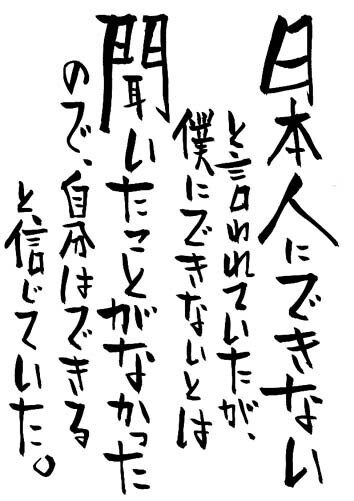 日本人にできない
と言われていたが、
僕にできないとは
聞いたことがなかった
ので、自分はできる
と、信じていた。